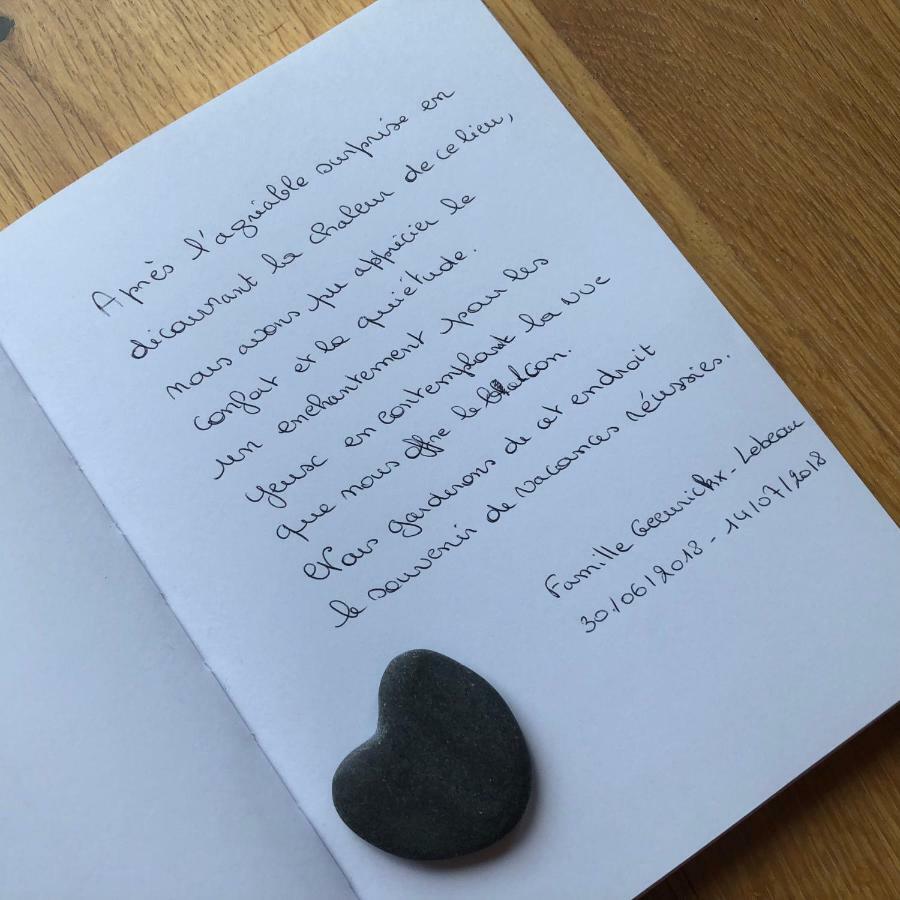 Après l'agréable surprise en
découvrant la chaleur de ce lieu,
nous avons pu apprécier le
confort et la quiétude.
un enchantement pour les
yeux en contemplant la vue
que nous offre le balcon.
Nous garderons de cet endroit
le souvenir de vacances réussies.
Famille Lebeau
30/06/2018 - 14/07/2018